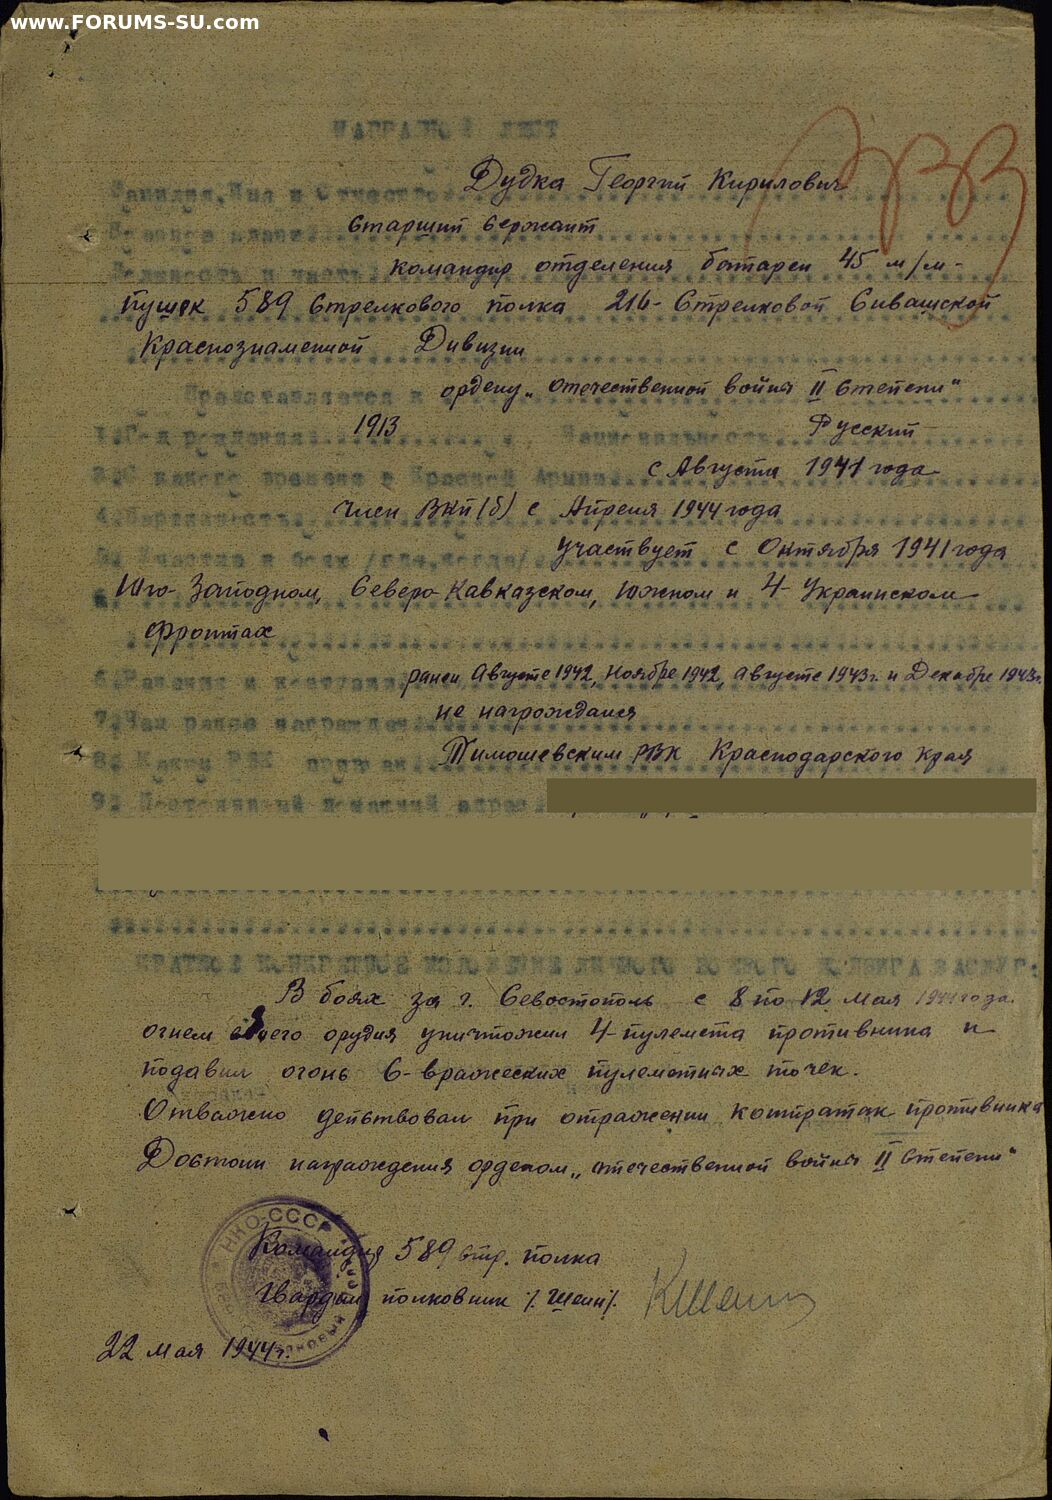 www.FORUMS-SU.com
НАГРАДНОЙ ЛИСТ
Фамилия, Имя и Отчество Дудка Георгий Кирилович
Военное звание Старший Сержант
Должность и часть командир отделения батареи 45 м/м-
пушек 589 Стрелкового полка 216- Стрелковой Сивашской
Краснознаменной Дивизии
Представляется к ордену „Отечественной война II Степени"
1. Год рождения 1913 Национальность Русский
3. С какого времени в Красной Армии с Августа 1941 года
4. Партийность член ВКП(б) с Апреля 1944 года
5. Участие в боях /где, когда/ участвует с Октября 1941 года
Юго-Западном, Северо Кавказском, Южном и 4-Украинском
фронтах
6. Ранения и контузии ранен Августе 1942, Ноябре 1942, августе 1943 г. и Декабре 1943 г.
7. Чем ранее награжден не награждался
8. Каким РВК призван Тимошевским РВК Краснодарского края
9. Постоянный домашний адрес
КРАТКОЕ КОНКРЕТНОЕ ИЗЛОЖЕНИЕ ЛИЧНОГО БОЕВОГО ПОДВИГА ЗАСЛУГ:
В боях за г. Севостополь с 8 по 12 мая 1944 года
огнем своего орудия уничтожил 4-пулемета противника и
подавил огонь 6-вражеских пулеметных точек.
Отважно действовал при отражении контратак противника
Достоин награждения орденом „Отечественной война II Степени"
НКО-СССР
Командир 589 стр. полка
Гвардии полковник /Шеин/.
22 мая 1944 г.